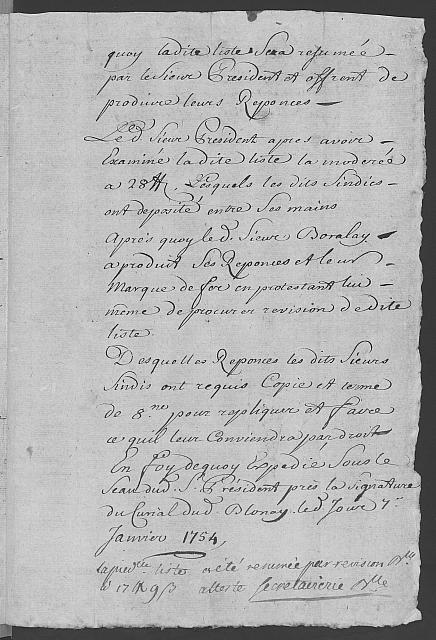 quoy ladite liste Sera resumée
par le Sieur President et offrent de
produire leurs Reponces
Le d. Sieur President apres avoir
Examiné ladite liste la moderée
a 28 Lesquels les dits Sindics
ont deposité entre Ses mains
Aprés quoy le d. Sieur Boralay
a produit Ses Reponces et leur
Marque de fer en protestant lui
méme de procurer revision de dite
liste.
Desquelles Reponces les dits Sieurs
Sindis ont requis Copie et terme
de 8.ne pour repliquer et faire
ce quil leur Conviendra par droit
En foy dequoy Expedié Sous le
Seau dud. Sr. Président prés la signature
du Curial dud. Blonay. led. Jour 7.e
Janvier 1754,
la liste a été par revision
a 17 atteste Secretairerie